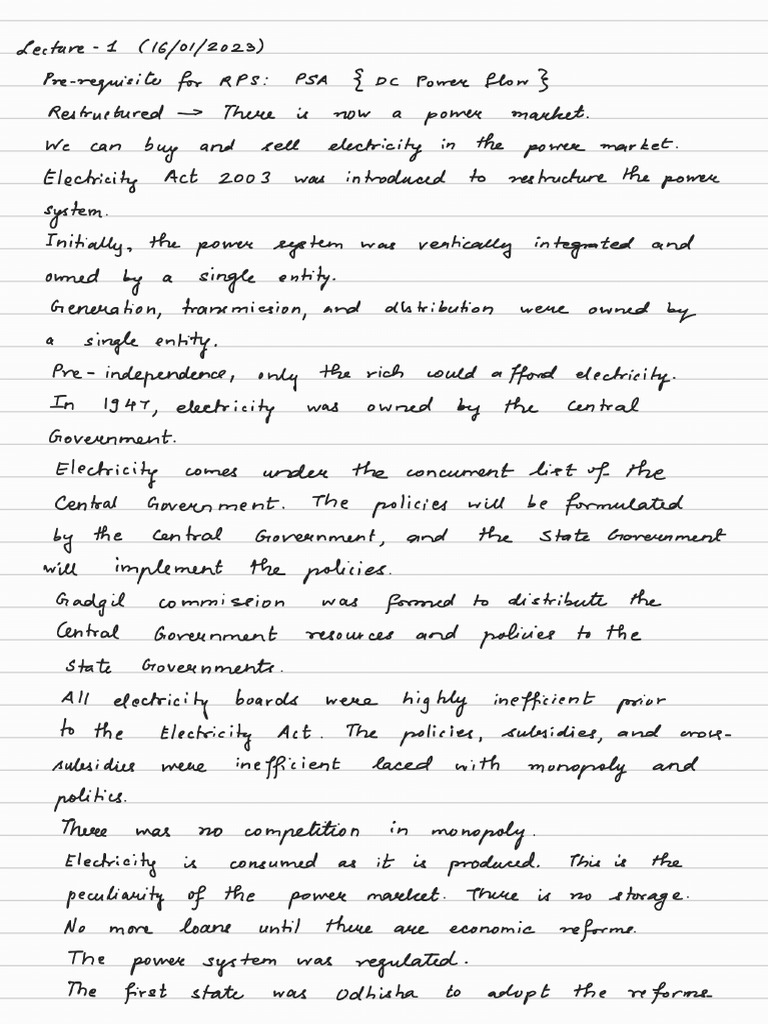 Lecture - 1 (16/01/2023)
Pre-requisite for RPS: PSA { DC Power flow }
Restructured → There is now a power market.
We can buy and sell electricity in the power market.
Electricity Act 2003 was introduced to restructure the power
system.
Initially, the power system was vertically integrated and
owned by a single entity.
Generation, transmission, and distribution were owned by
a single entity.
Pre-independence, only the rich could afford electricity.
In 1947, electricity was owned by the Central
Government.
Electricity comes under the concurrent list of the
Central Government. The policies will be formulated
by the Central Government, and the State Government
will implement the policies.
Gadgil commission was formed to distribute the
Central Government resources and policies to the
State Governments.
All electricity boards were highly inefficient prior
to the Electricity Act. The policies, subsidies, and cross-
subsidies were inefficient laced with monopoly and
politics.
There was no competition in monopoly.
Electricity is consumed as it is produced. This is the
peculiarity of the power market. There is no storage.
No more loans until there are economic reforms.
The power system was regulated.
The first state was Odhisha to adopt the reforms